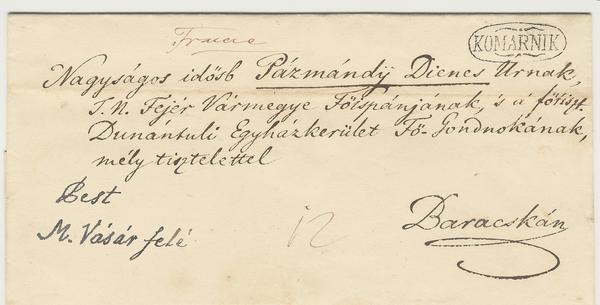 Franco
KOMARNIK
Nagyságos idősb Pázmándÿ Dienes Urnak,
T. N. Fejér Vármegye Főispánjának, 's á főtiszt.
Dunantuli Egyházkerület Fő-Gondnokának,
mély tisztelettel
Pest
M. Vásár felé
12
Baracskán